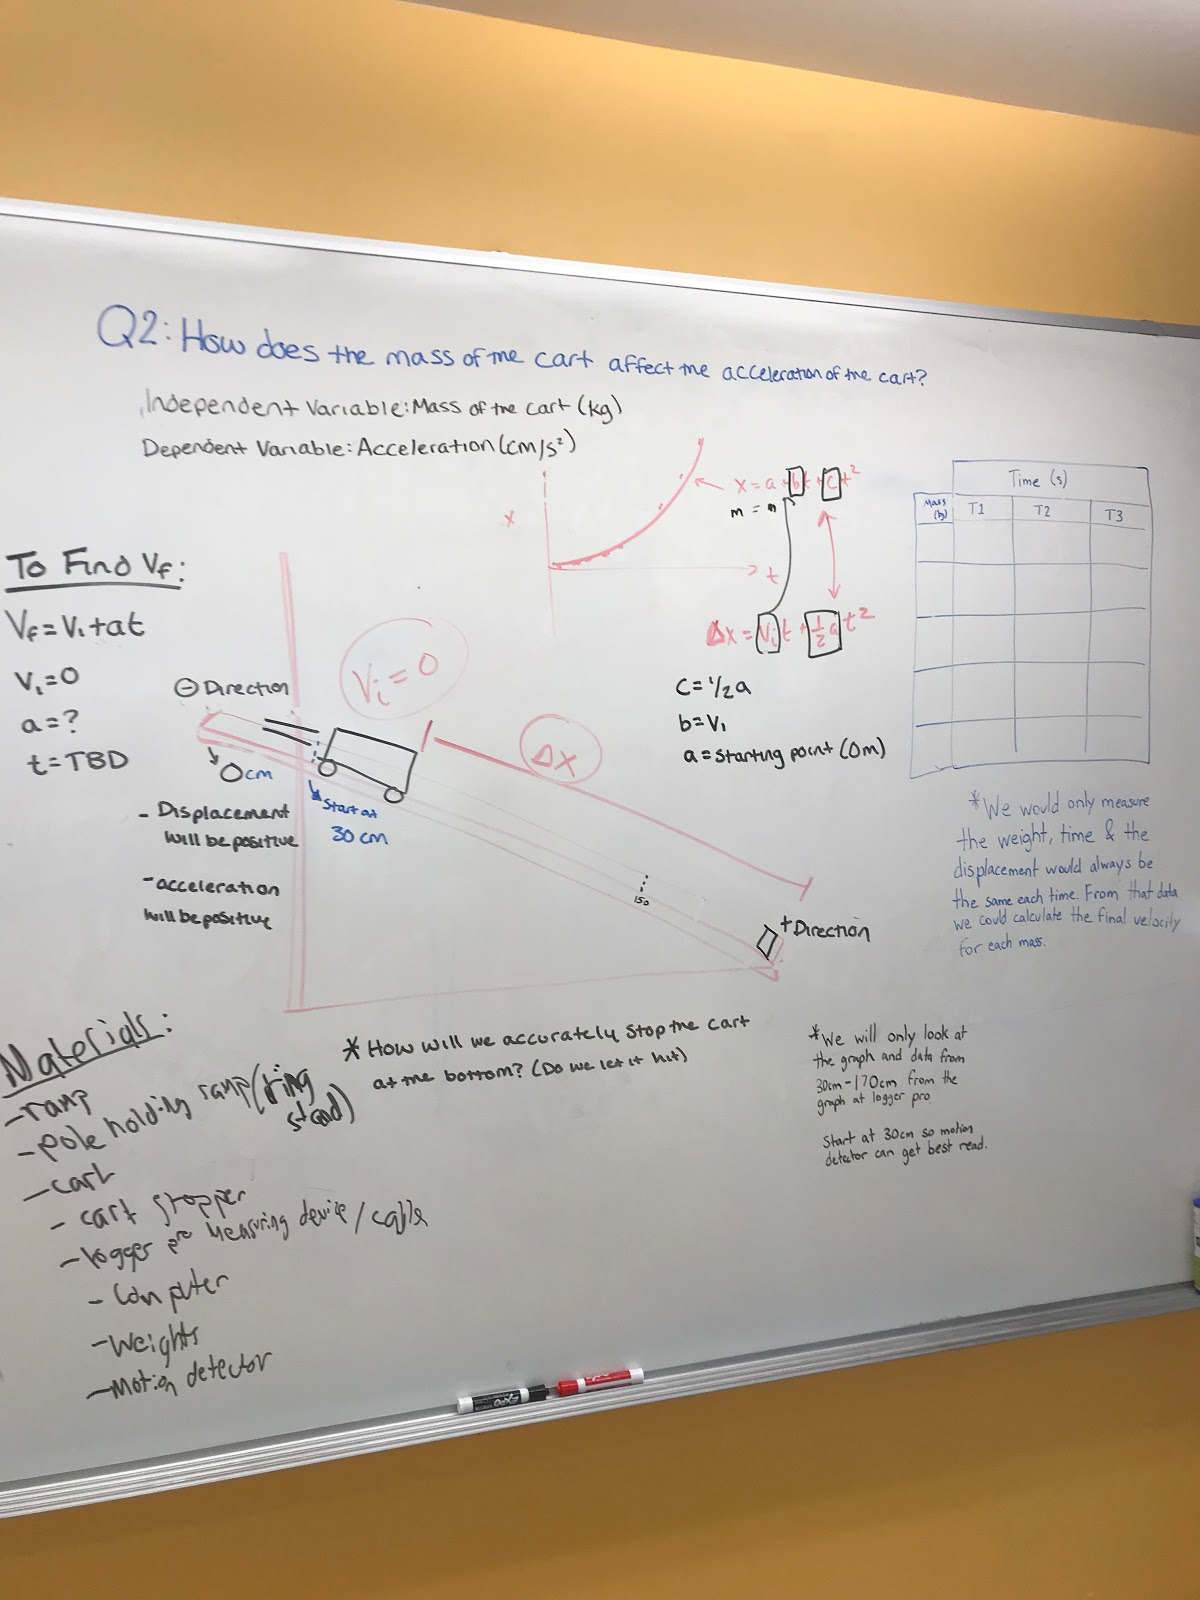 Q2: How does the mass of the cart affect the acceleration of the cart?
Independent Variable: Mass of the cart (kg)
Dependent Variable: Acceleration (cm/s²)
To Find Vf:
Vf = Vi + at
Vi = 0
a = ?
t = TBD
x
t
x = a + bt + ct²
m =
Δx = Vit + ½at²
C = ½a
b = Vi
a = starting point (0m)
Time (s)
Mass (kg)
T1
T2
T3
⊖ Direction
Vi = 0
Δx
0cm
Start at
30 cm
150
+ Direction
- Displacement
will be positive
- acceleration
will be positive
*We would only measure
the weight, time & the
displacement would always be
the same each time. From that data
we could calculate the final velocity
for each mass.
Materials:
- ramp
- pole holding ramp (ring
stand)
- cart
- cart stopper
- logger pro measuring device / cable
- Computer
- Weights
- Motion detector
* How will we accurately stop the cart
at the bottom? (Do we let it hit)
*We will only look at
the graph and data from
30cm-170cm from the
graph at logger pro
Start at 30cm so motion
detector can get best read.
EXPO